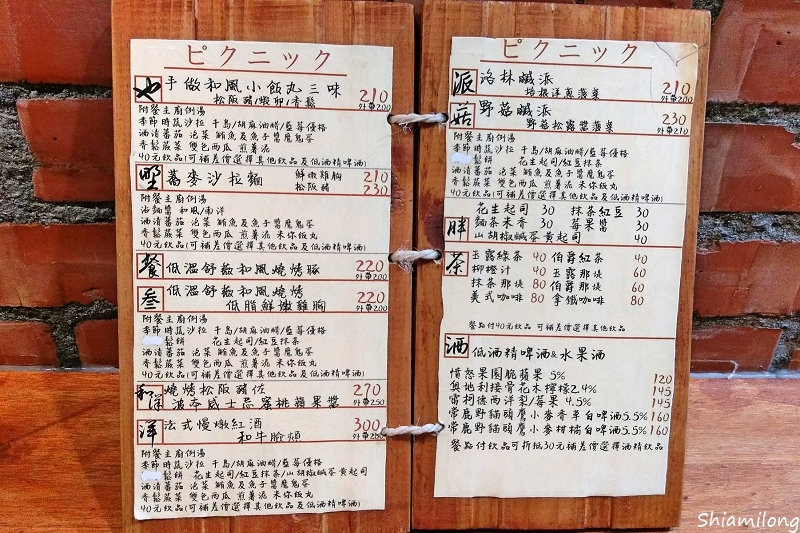 ピクニック
手做和風小飯丸三味 210
松阪豬/蝦卵/香鬆 外帶200
附餐主廚例湯
季節時蔬沙拉 千島/胡麻油醋/藍莓優格
酒漬蕃茄 泡菜 鮪魚及魚子醬魔鬼蛋
香鬆蕨菜 雙色西瓜 煎薯泥
40元飲品(可補差價選擇其他飲品及低酒精啤酒)
野 蕎麥沙拉麵 鮮嫩雞胸 210
松阪豬 230
附餐主廚例湯
沾麵醬 和風/南洋
酒漬蕃茄 泡菜 鮪魚及魚子醬魔鬼蛋
香鬆蕨菜 雙色西瓜 煎薯泥 米你飯丸
40元飲品(可補差價選擇其他飲品及低酒精啤酒)
餐 低溫舒菽和風燒烤豚 220
外帶200
叁 低溫舒菽和風燒烤 220
低脂鮮嫩雞胸 外帶200
附餐主廚例湯
季節時蔬沙拉 千島/胡麻油醋/藍莓優格
鬆餅 花生起司/紅豆抹茶
酒漬蕃茄 泡菜 鮪魚及魚子醬魔鬼蛋
香鬆蕨菜 雙色西瓜 煎薯泥 米你飯丸
40元飲品(可補差價選擇其他飲品及低酒精啤酒)
和洋 燒烤松阪豬佐 270
波本威士忌蜜桃蘋果醬 外帶250
洋 法式慢燉紅酒 300
和牛臉頰 外帶250
附餐主廚例湯
季節時蔬沙拉 千島/胡麻油醋/藍莓優格
鬆餅 花生起司/紅豆抹茶/山胡椒鹹蛋黃起司
酒漬蕃茄 泡菜 鮪魚及魚子醬魔鬼蛋
香鬆蕨菜 雙色西瓜 煎薯泥 米你飯丸
40元飲品(可補差價選擇其他飲品及低酒精啤酒)
ピクニック
派 洛林鹹派 210
培根洋蔥菠菜 外帶200
菇 野菇鹹派 230
野菇松露醬菠菜 外帶210
附餐主廚例湯
季節時蔬沙拉 千島/胡麻油醋/藍莓優格
鬆餅 花生起司/紅豆抹茶
酒漬蕃茄 泡菜 鮪魚及魚子醬魔鬼蛋
香鬆蕨菜 雙色西瓜 煎薯泥 米你飯丸
40元飲品(可補差價選擇其他飲品及低酒精啤酒)
胖 花生起司 30 抹茶紅豆 30
麵茶米香 30 莓果醬 30
山胡椒鹹蛋黃起司 40
茶 玉露綠茶 40 伯爵紅茶 40
柳橙汁 40 玉露那堤 60
抹茶那堤 80 伯爵那堤 60
美式咖啡 80 拿鐵咖啡 80
餐點付40元飲品 可補差價選擇其他飲品
酒 低酒精啤酒&水果酒
憤怒果園脆蘋果 5% 120
奧地利接骨花木檸檬2.4% 145
雷柯德西洋梨/莓果 4.5% 145
常鹿野貓頭鷹小麥香草白啤酒5.5% 160
常鹿野貓頭鷹小麥柑橘白啤酒5.5% 160
餐點付飲品可折抵30元補差價選擇酒精飲品
Shiamilong